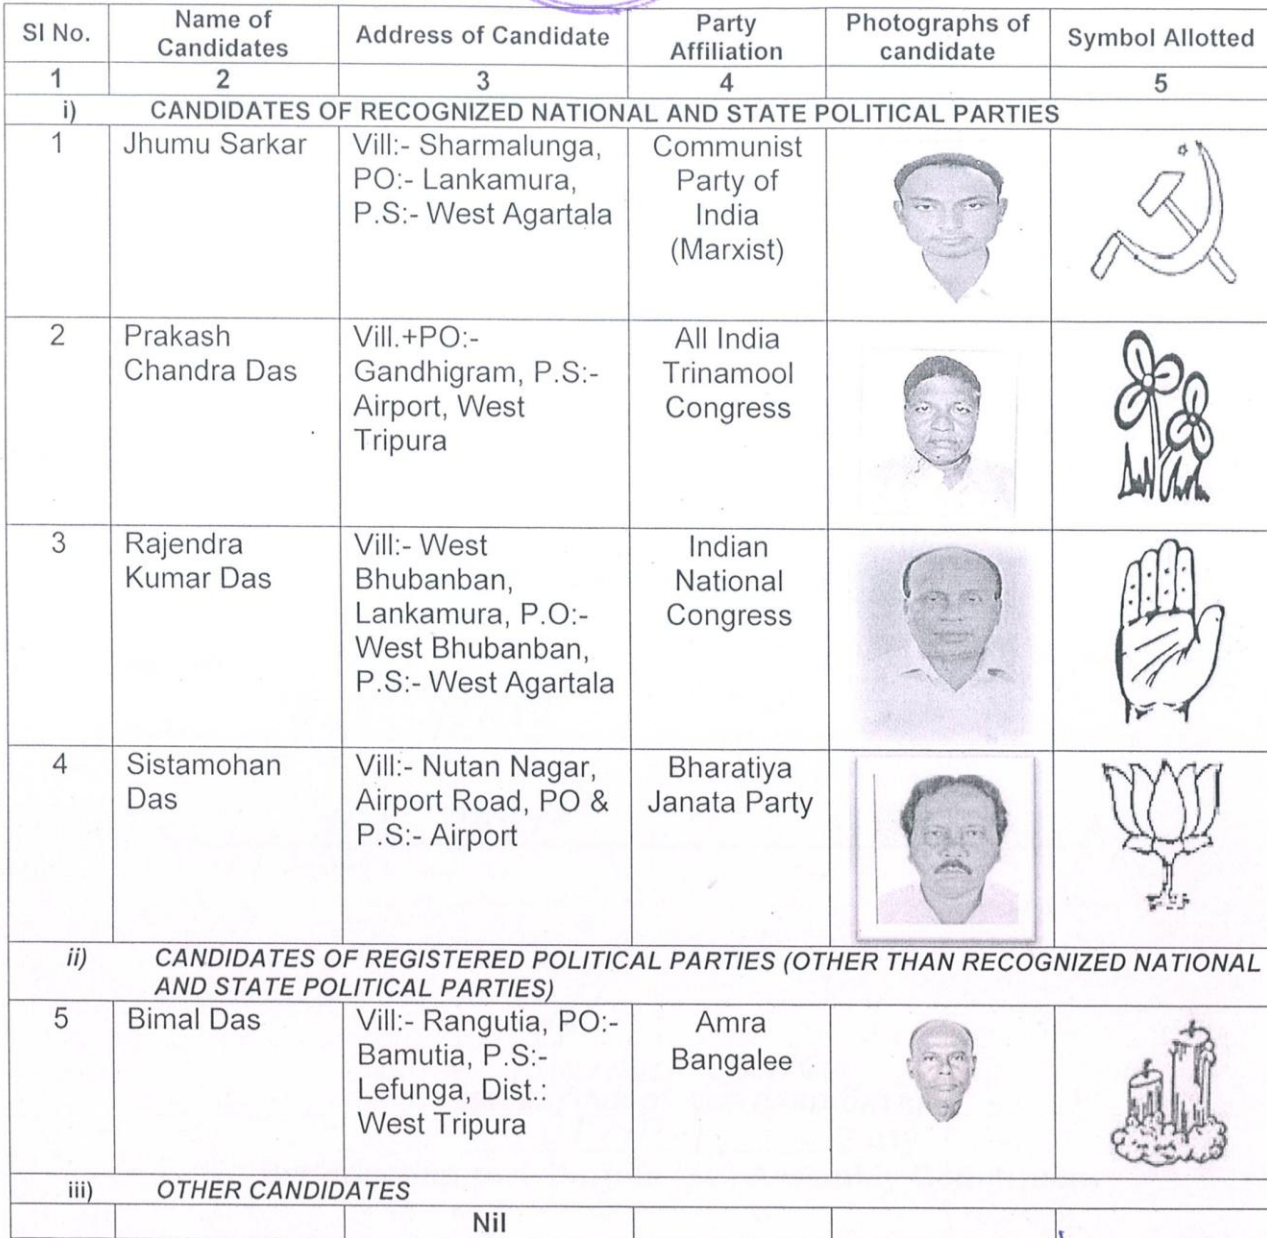 SI No.
Name of
Candidates
Address of Candidate
Party
Affiliation
Photographs of
candidate
Symbol Allotted
1
2
3
4
5
i) CANDIDATES OF RECOGNIZED NATIONAL AND STATE POLITICAL PARTIES
1
Jhumu Sarkar
Vill:- Sharmalunga,
PO:- Lankamura,
P.S:- West Agartala
Communist
Party of
India
(Marxist)
2
Prakash
Chandra Das
Vill.+PO:-
Gandhigram, P.S:-
Airport, West
Tripura
All India
Trinamool
Congress
3
Rajendra
Kumar Das
Vill:- West
Bhubanban,
Lankamura, P.O:-
West Bhubanban,
P.S:- West Agartala
Indian
National
Congress
4
Sistamohan
Das
Vill:- Nutan Nagar,
Airport Road, PO &
P.S:- Airport
Bharatiya
Janata Party
ii) CANDIDATES OF REGISTERED POLITICAL PARTIES (OTHER THAN RECOGNIZED NATIONAL
AND STATE POLITICAL PARTIES)
5
Bimal Das
Vill:- Rangutia, PO:-
Bamutia, P.S:-
Lefunga, Dist.:
West Tripura
Amra
Bangalee
iii) OTHER CANDIDATES
Nil